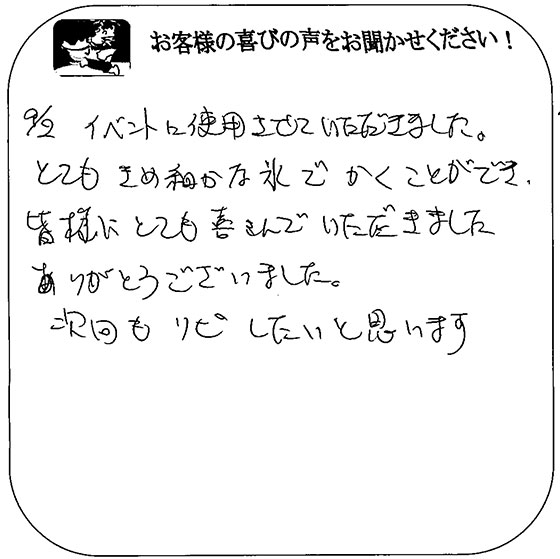 お客様の喜びの声をお聞かせください！
9/2 イベントに使用させていただきました。
とても きめ細かな氷で かくことができ、
皆様に とても喜んで いただきました
ありがとうございました。
次回も リピ したいと思います